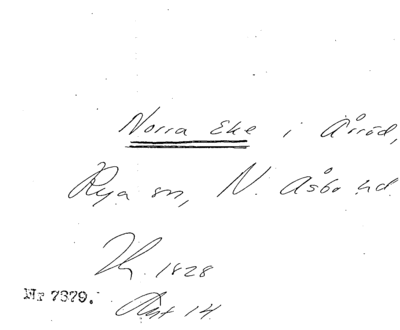 Norra Eke i Årröd,
Rya sn, N. Åsbo hd.
1828
Nr 7379.
Akt 14